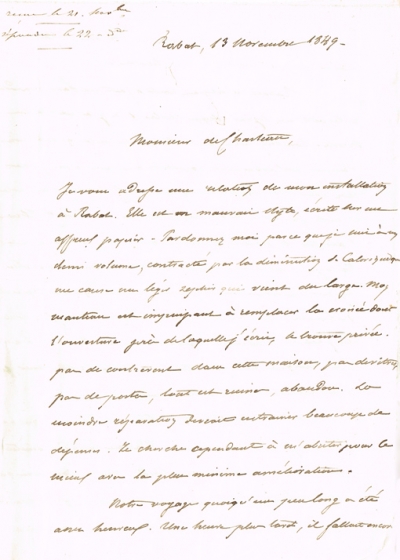 reçue le 21. 
répondu le 22 -
Rabat, 13 Novembre 1849 -
Monsieur de Chasteau,
Je vous adresse une relation de mon installation
à Rabat. Elle est en mauvais style, écrite sur un
affreux papier - Pardonnez moi parce que je suis à un
demi volume, contracté par la diminution de Calorique
me cause un légé qui vient du large. Mon
manteau est impuissant à remplacer la croisée dont
l'ouverture près de laquelle j'écris, se trouve privée.
pas de contrevent dans cette maison, pas de vitres,
pas de porte, tout est ruine, abandon. La
moindre réparation devrait entrainer beaucoup de
dépense. Je cherche cependant à m'abriter pour le
mieux avec la plus minime amélioration.
Notre voyage quoiqu'un peu long a été
assez heureux. Une heure plus tard, il fallait